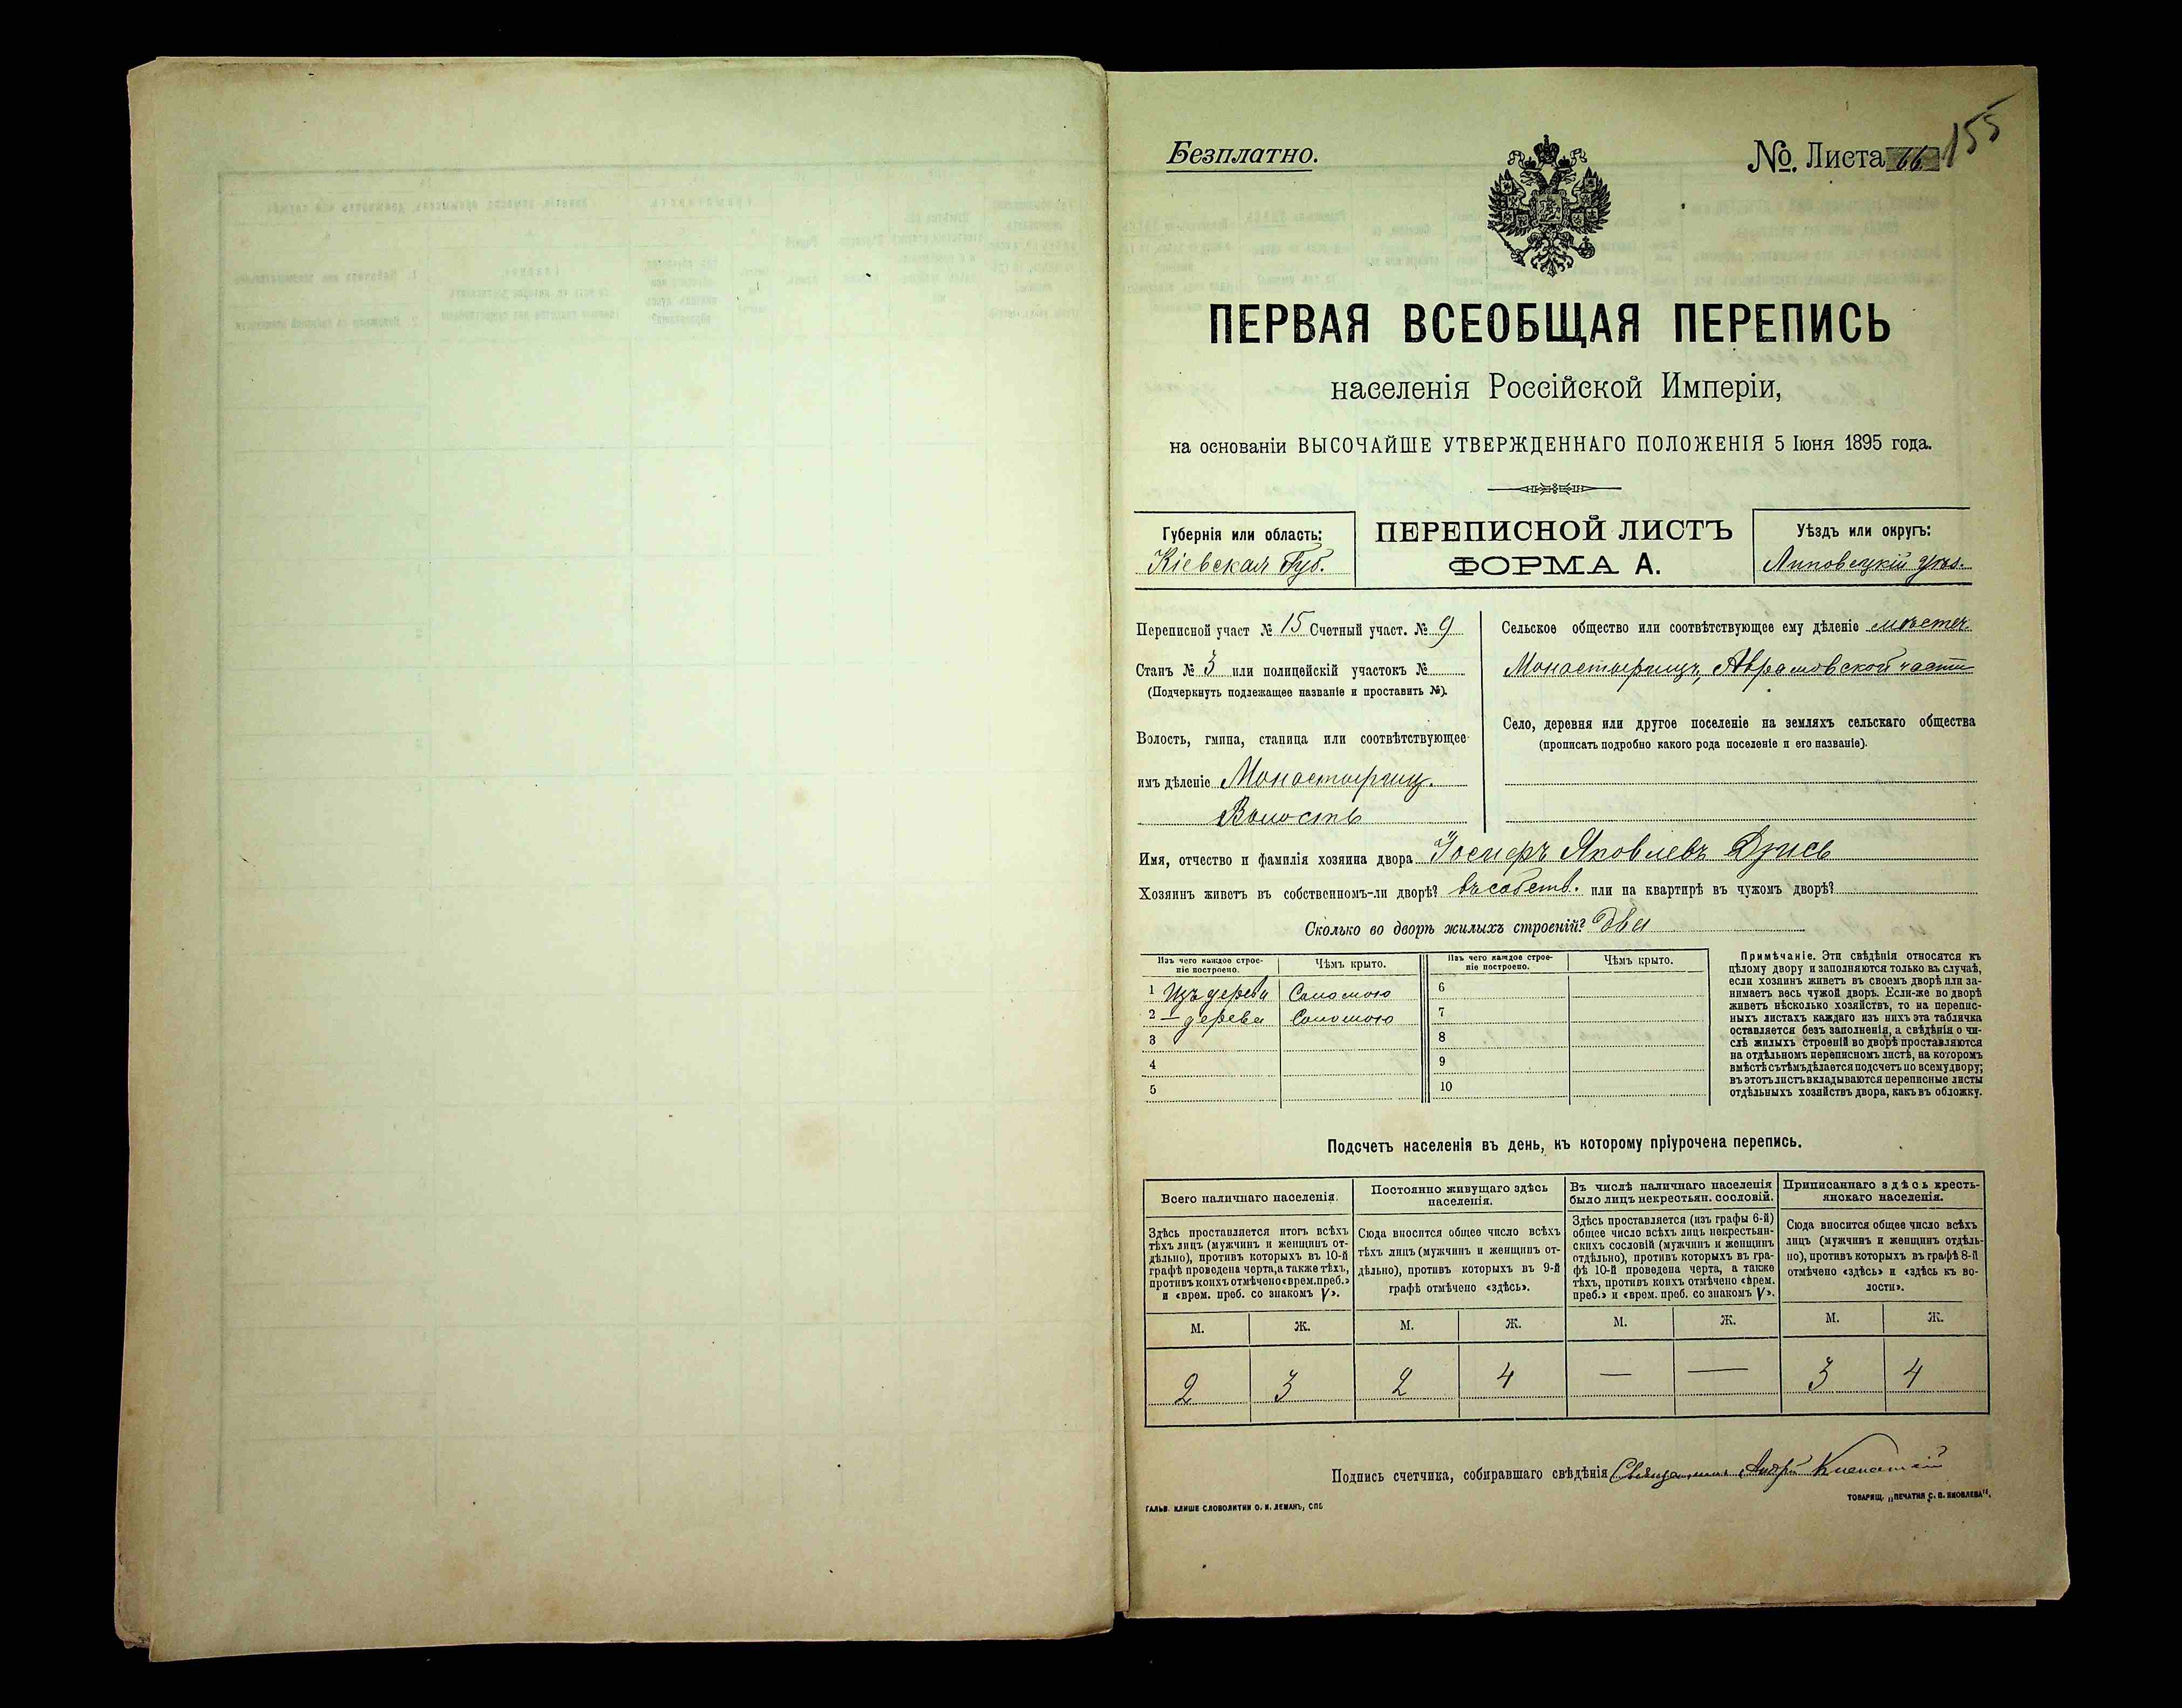 Безплатно.
№. Листа 66 155
ПЕРВАЯ ВСЕОБЩАЯ ПЕРЕПИСЬ
населенія Россійской Имперіи,
на основаніи ВЫСОЧАЙШЕ УТВЕРЖДЕННАГО ПОЛОЖЕНІЯ 5 Іюня 1895 года.
Губернія или область:
Кіевская Губ.
ПЕРЕПИСНОЙ ЛИСТЪ
ФОРМА А.
Уѣздъ или округъ:
Липовецкій уѣз.
Переписной участ № 15 Счетный участ. № 9
Станъ № 3 или полицейскій участокъ №
(Подчеркнуть подлежащее названіе и проставить №).
Волость, гмина, станица или соотвѣтствующее
имъ дѣленіе Монастырищ.
Волость
Сельское общество или соотвѣтствующее ему дѣленіе мѣстеч
Монастырищъ, Аврамовской части
Село, деревня или другое поселеніе на земляхъ сельскаго общества
(прописать подробно какого рода поселеніе и его названіе).
Имя, отчество и фамилія хозяина двора Іосифъ Яковлевъ Дзись
Хозяинъ живетъ въ собственномъ-ли дворѣ? въ собств. или на квартирѣ въ чужомъ дворѣ?
Сколько во дворѣ жилыхъ строеній? два
Изъ чего каждое строе-
ніе построено.
Чѣмъ крыто.
Изъ чего каждое строе-
ніе построено.
Чѣмъ крыто.
1 Изъ дерева Соломою 6
2 — дерева Соломою 7
3 8
4 9
5 10
Примѣчаніе. Эти свѣдѣнія относятся къ
цѣлому двору и заполняются только въ случаѣ,
если хозяинъ живетъ въ своемъ дворѣ или за-
нимаетъ весь чужой дворъ. Если-же во дворѣ
живетъ нѣсколько хозяйствъ, то на перепис-
ныхъ листахъ каждаго изъ нихъ эта табличка
оставляется безъ заполненія, а свѣдѣнія о чи-
слѣ жилыхъ строеній во дворѣ проставляются
на отдѣльномъ переписномъ листѣ, на которомъ
вмѣстѣ съ тѣмъ дѣлается подсчетъ по всему двору;
въ этотъ листъ вкладываются переписные листы
отдѣльныхъ хозяйствъ двора, какъ въ обложку.
Подсчетъ населенія въ день, къ которому пріурочена перепись.
Всего наличнаго населенія.
Здѣсь проставляется итогъ всѣхъ
тѣхъ лицъ (мужчинъ и женщинъ от-
дѣльно), противъ которыхъ въ 10-й
графѣ проведена черта, а также тѣхъ,
противъ коихъ отмѣчено «врем. преб.»
и «врем. преб. со знакомъ V».
Постоянно живущаго здѣсь
населенія.
Сюда вносится общее число всѣхъ
тѣхъ лицъ (мужчинъ и женщинъ от-
дѣльно), противъ которыхъ въ 9-й
графѣ отмѣчено «здѣсь».
Въ числѣ наличнаго населенія
было лицъ некрестьян. сословій.
Здѣсь проставляется (изъ графы 6-й)
общее число всѣхъ лицъ некрестьян-
скихъ сословій (мужчинъ и женщинъ
отдѣльно), противъ которыхъ въ гра-
фѣ 10-й проведена черта, а также
тѣхъ, противъ коихъ отмѣчено «врем.
преб.» и «врем. преб. со знакомъ V».
Приписаннаго здѣсь кресть-
янскаго населенія.
Сюда вносится общее число всѣхъ
лицъ (мужчинъ и женщинъ отдѣль-
но), противъ которыхъ въ графѣ 8-й
отмѣчено «здѣсь» и «здѣсь къ во-
лости».
М. Ж. М. Ж. М. Ж. М. Ж.
2 3 2 4 — — 3 4
Подпись счетчика, собиравшаго свѣдѣнія Священникъ Андрей
ГАЛЬВ. КЛИШЕ СЛОВОЛИТНИ О. И. ЛЕМАНЪ, СПБ
ТОВАРИЩ. „ПЕЧАТНЯ С. П. ЯКОВЛЕВА“.